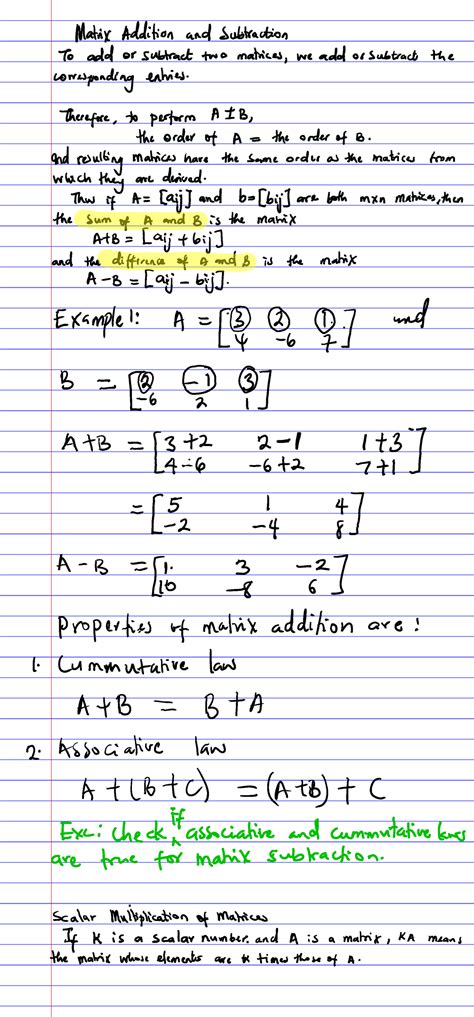 Matrix Addition and Subtraction
To add or subtract two matrices, we add or subtract the
corresponding entries.
Therefore, to perform A ± B,
the order of A = the order of B.
and resulting matrices have the same order as the matrices from
which they are derived.
Thus if A = [aij] and b = [bij] are both mxn matrices, then
the sum of A and B is the matrix
A+B = [aij + bij]
and the difference of A and B is the matrix
A - B = [aij - bij].
Example 1: A = [3 2 1 and
4 -6 7]
B = [2 -1 3
-6 2 1]
A+B = [3+2 2-1 1+3
4-6 -6+2 7+1]
= [5 1 4
-2 -4 8]
A - B = [1 3 -2
10 -8 6]
Properties of matrix addition are:
1. Cummutative law
A+B = B+A
2. Associative law
A+(B+C) = (A+B)+C
Exc: Check if associative and cummutative laws
are true for matrix subtraction.
Scalar Multiplication of Matrices
If K is a scalar number and A is a matrix, KA means
the matrix whose elements are K times those of A.